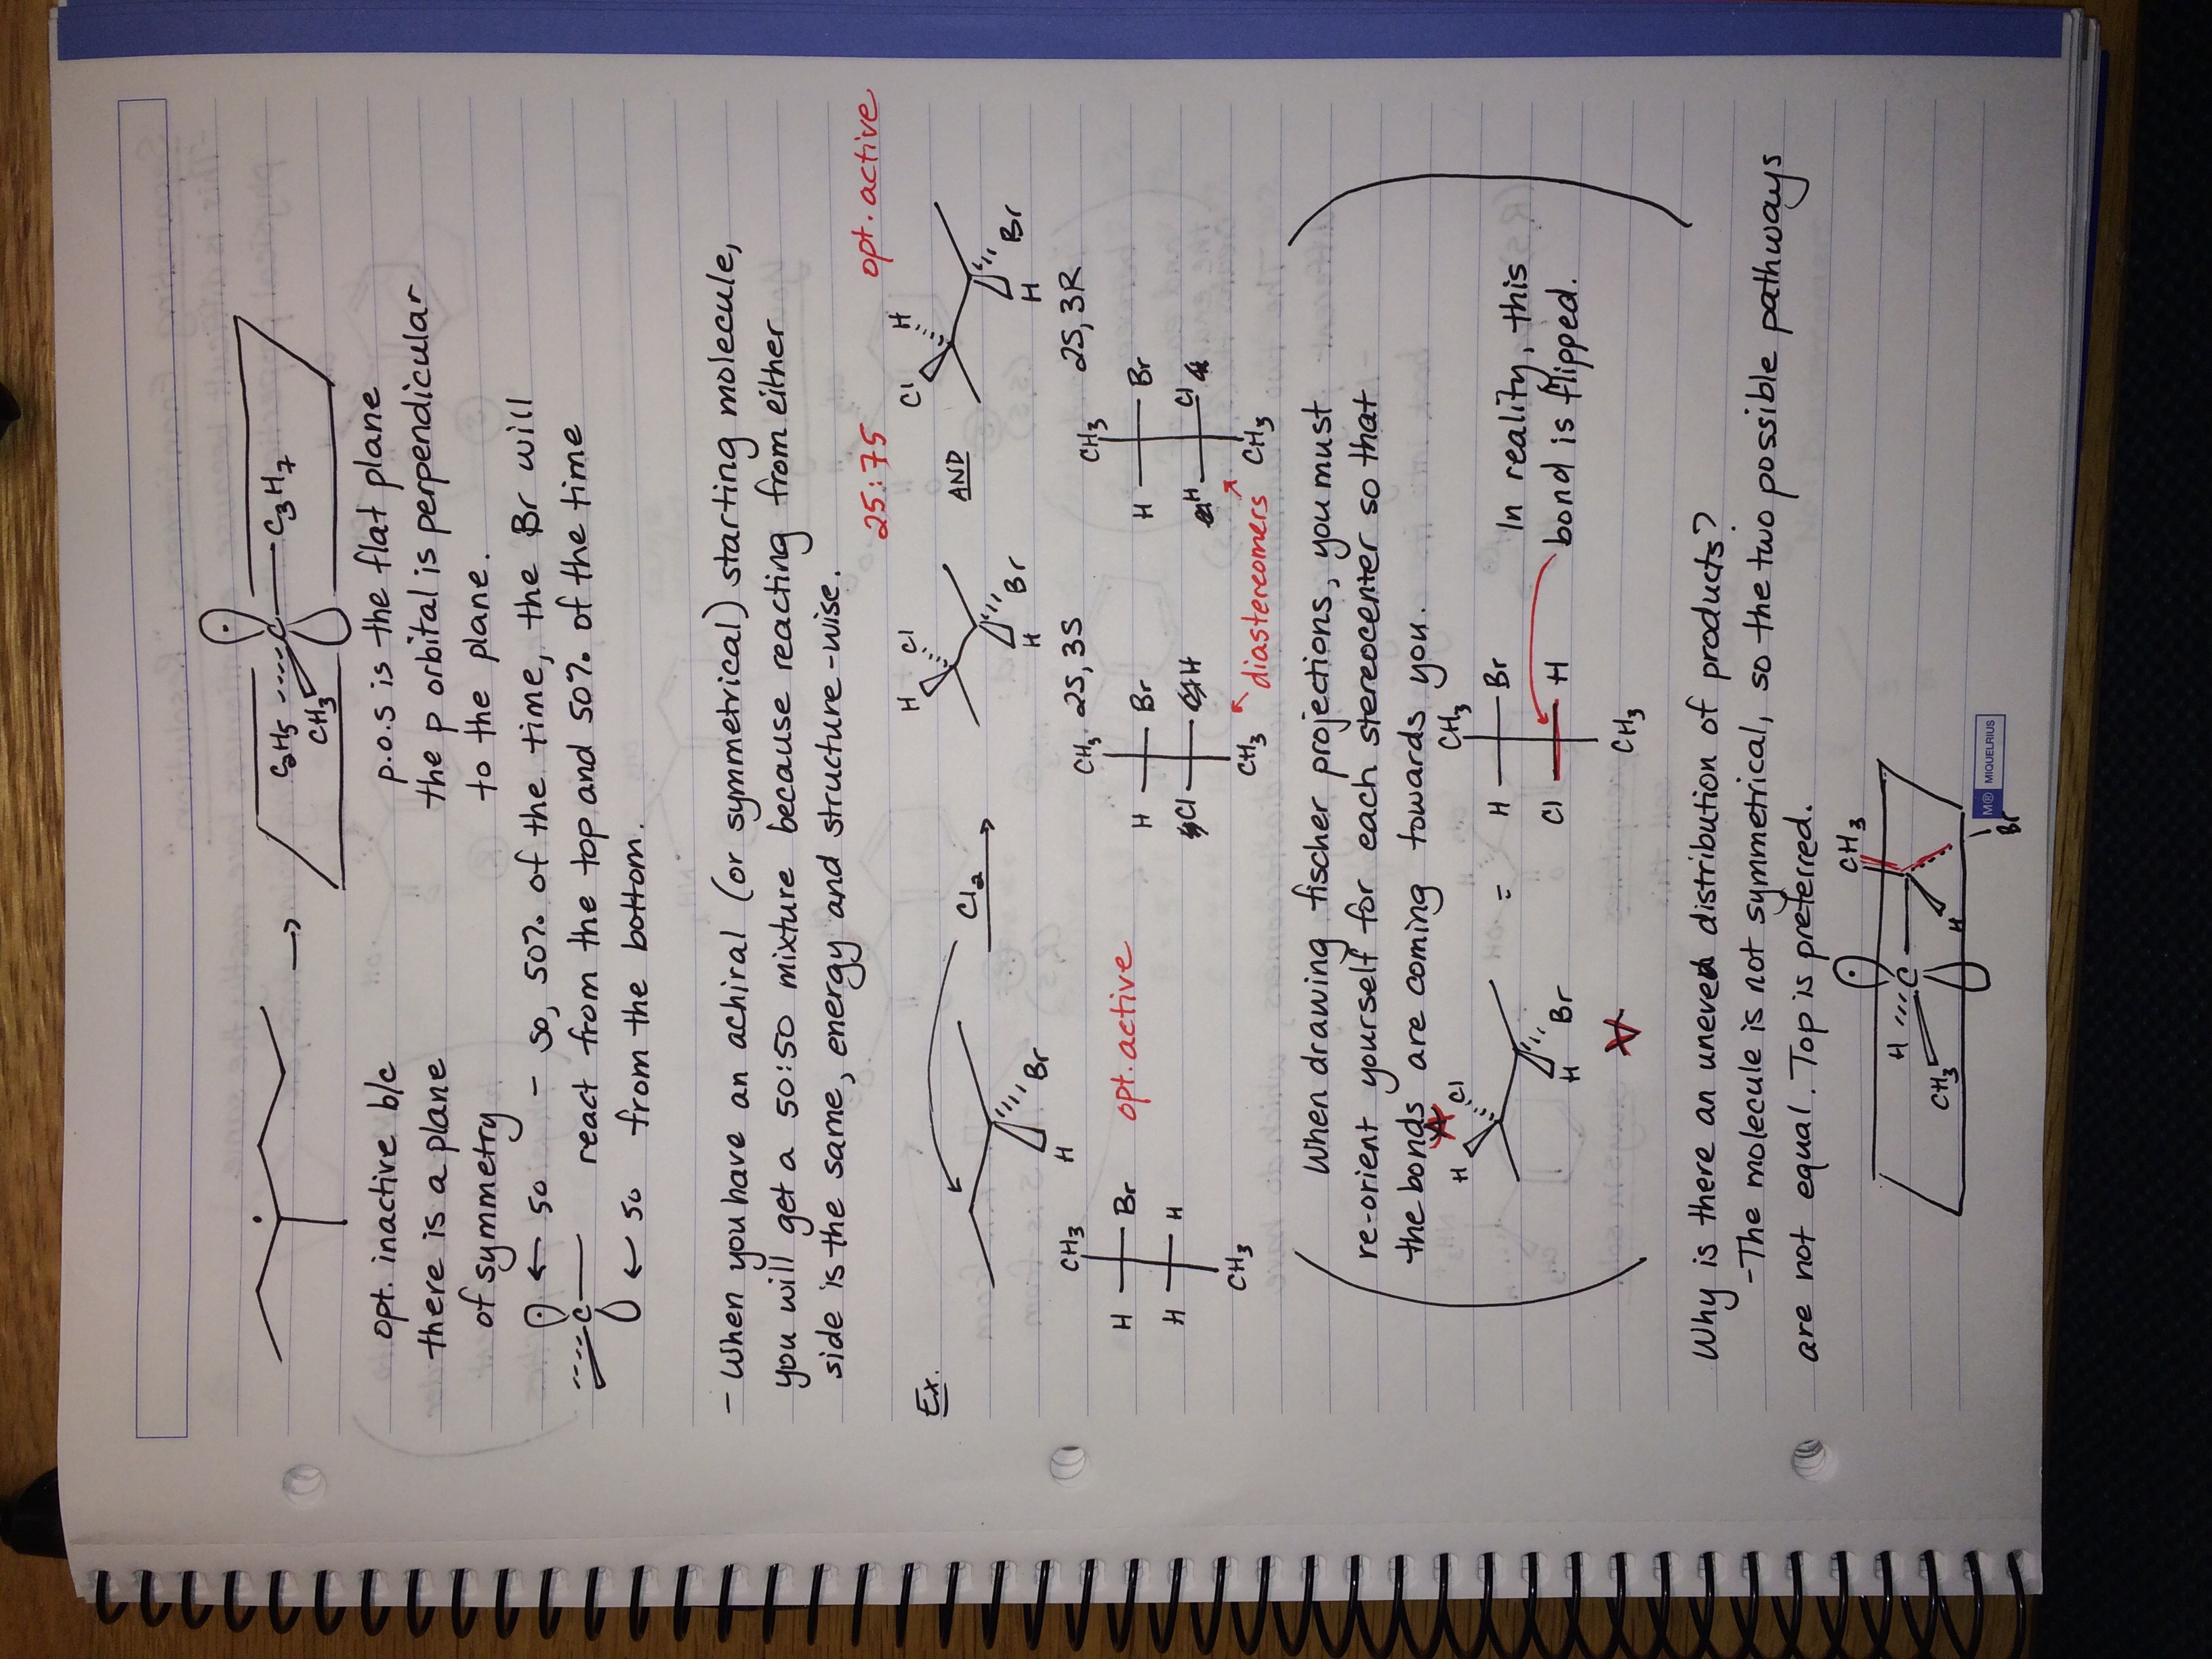 C₂H₅ C C₃H₇
CH₃
opt. inactive b/c
there is a plane
of symmetry
p.o.s is the flat plane
the p orbital is perpendicular
to the plane.
C ← 50 - so, 50% of the time, the Br will
react from the top and 50% of the time
← 50 from the bottom.
- When you have an achiral (or symmetrical) starting molecule,
you will get a 50:50 mixture because reacting from either
side is the same, energy and structure-wise.
25:75 opt. active
Ex.
Cl₂ →
H Br
H Cl H Br
AND
Cl H H Br
2S, 3S 2S, 3R
CH₃ CH₃ CH₃
H Br H Br H Br
H H Cl H H Cl
CH₃ CH₃ CH₃
opt. active
diastereomers
When drawing fischer projections, you must
re-orient yourself for each stereocenter so that
the bonds are coming towards you.
H Cl H Br
=
CH₃
H Br
Cl H
CH₃
In reality, this
bond is flipped.
Why is there an uneven distribution of products?
- The molecule is not symmetrical, so the two possible pathways
are not equal. Top is preferred.
H C CH₃
CH₃ H Br
M® MIQUELRIUS